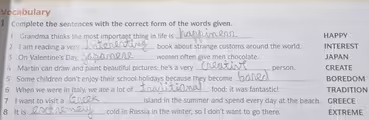 Vocabulary
1 Complete the sentences with the correct form of the words given.
1 Grandma thinks the most important thing in life is happiness HAPPY
2 I am reading a very interesting book about strange customs around the world. INTEREST
3 On Valentine's Day, Japanese women often give men chocolate. JAPAN
4 Martin can draw and paint beautiful pictures; he's a very creative person. CREATE
5 Some children don't enjoy their school holidays because they become bored BOREDOM
6 When we were in Italy, we ate a lot of traditional food; it was fantastic! TRADITION
7 I want to visit a Greek island in the summer and spend every day at the beach. GREECE
8 It is cold in Russia in the winter, so I don't want to go there. EXTREME